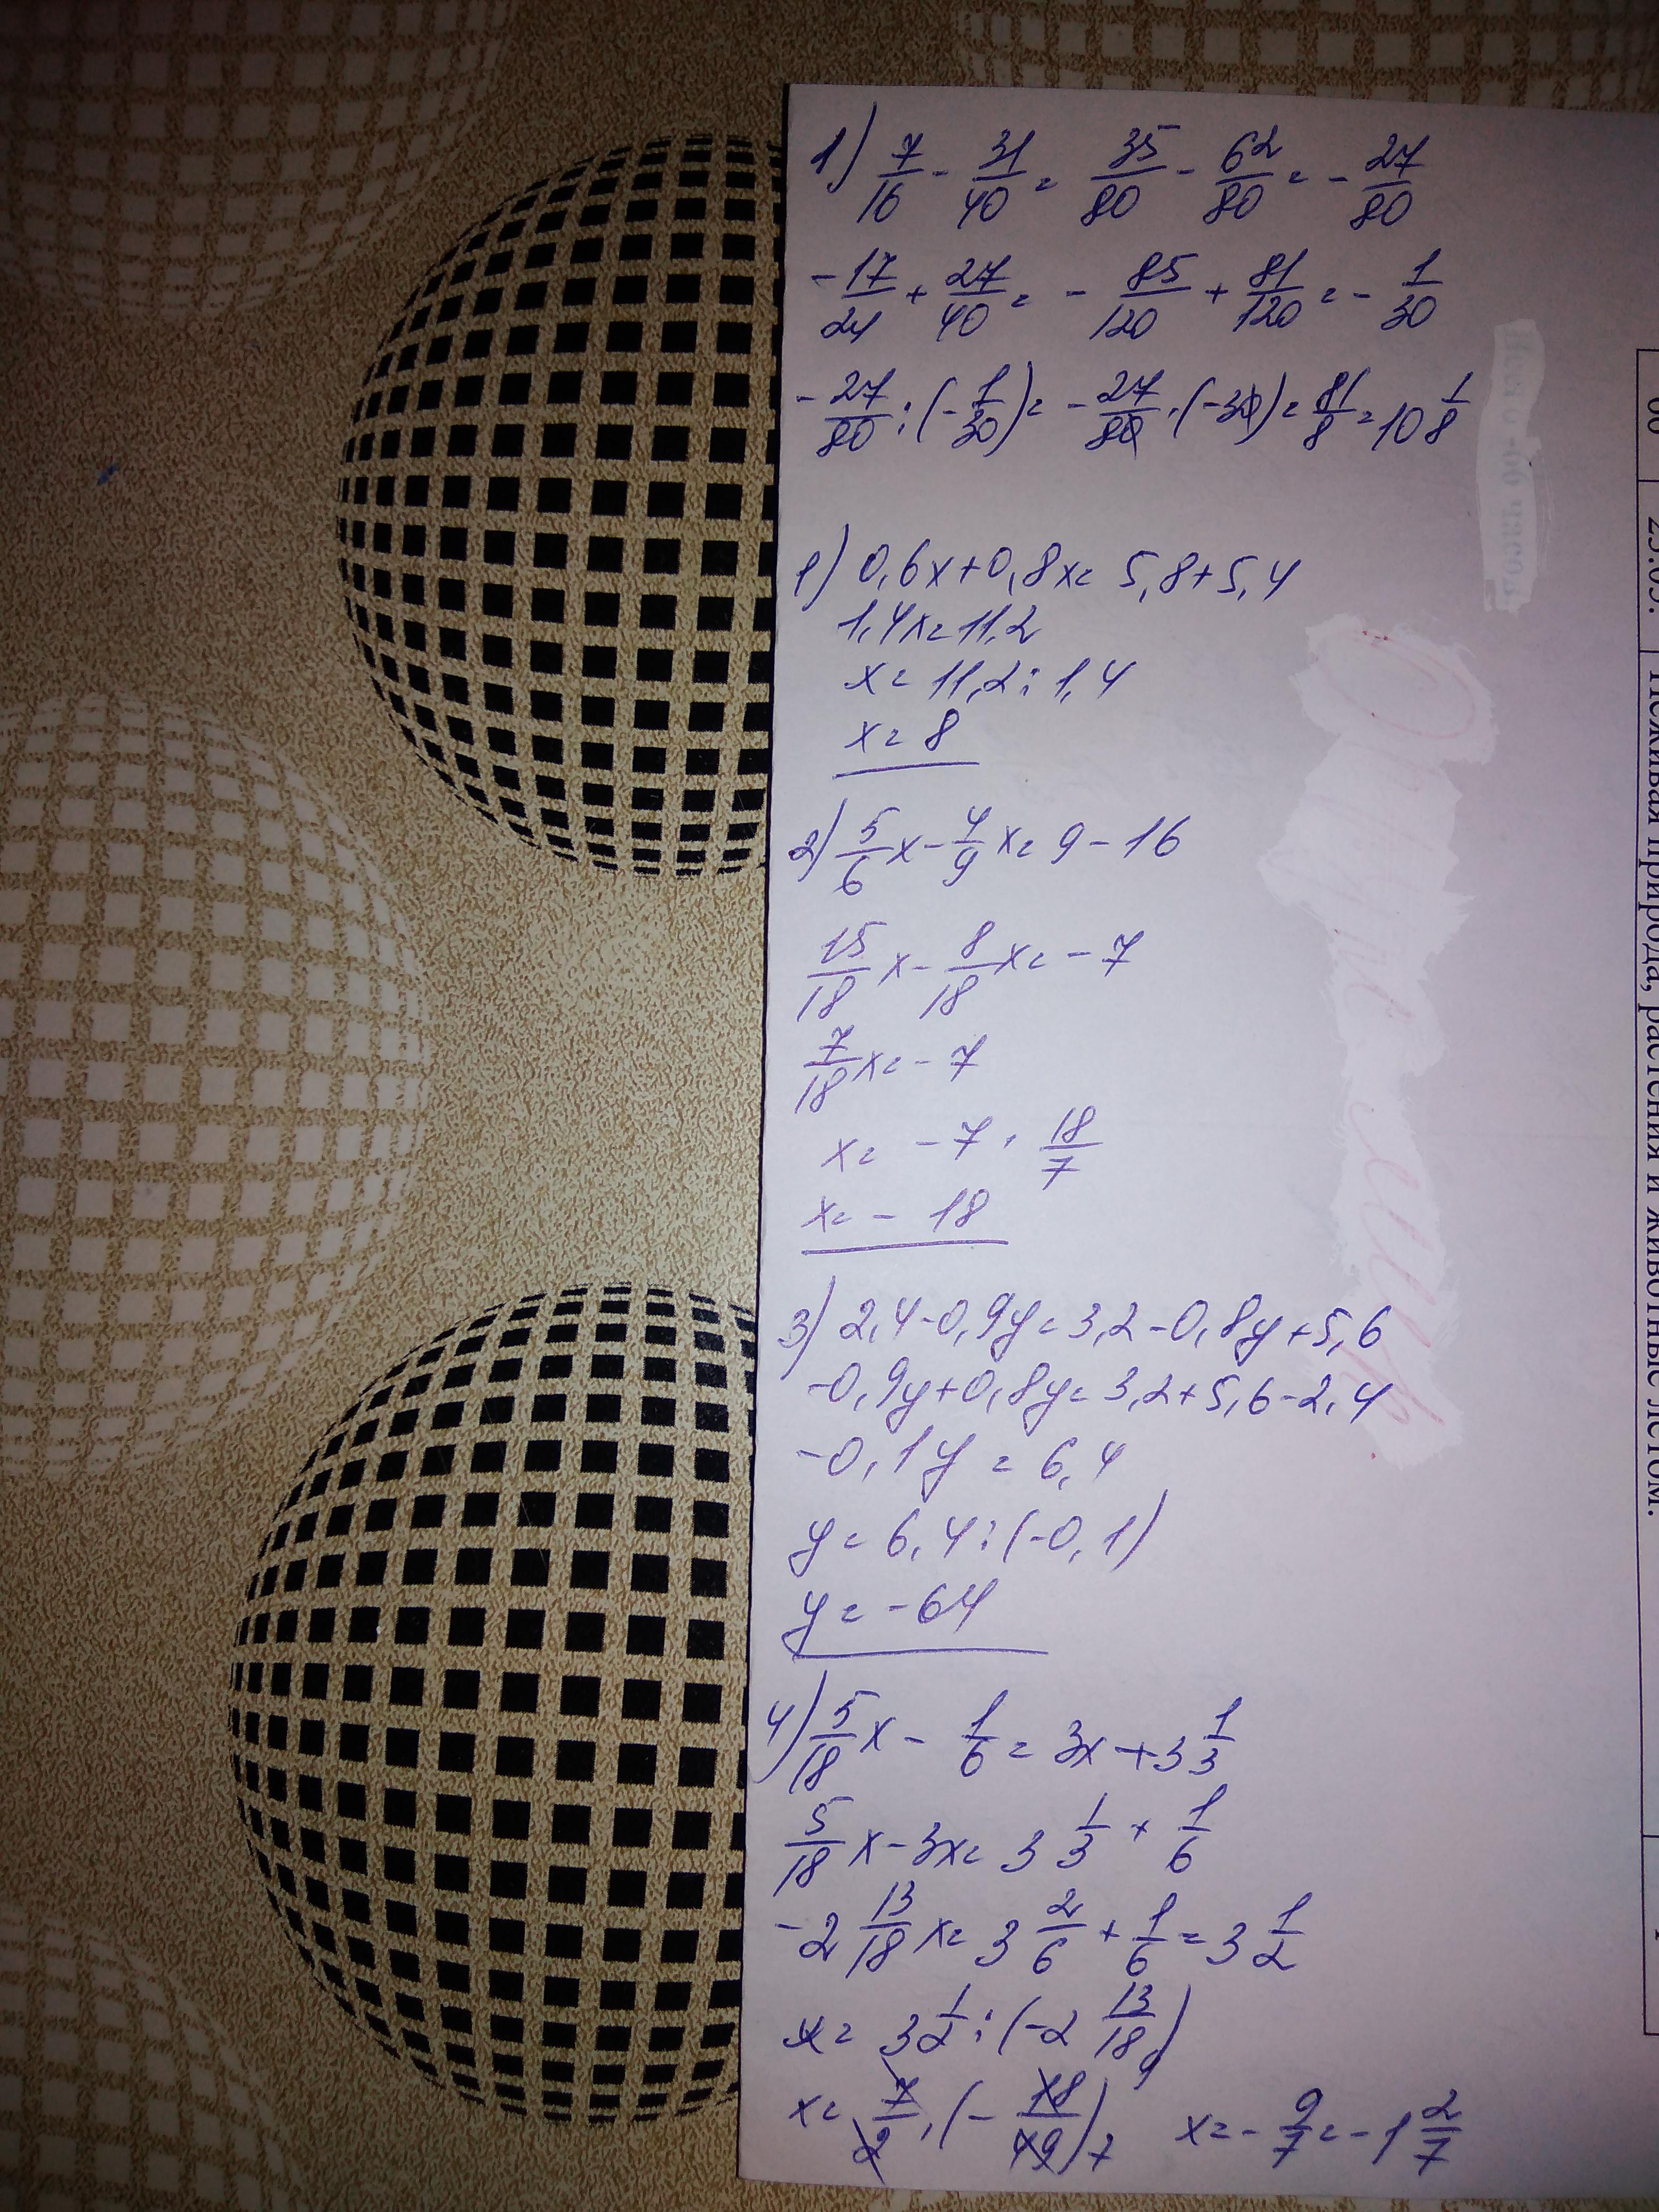 1) 7/16 - 31/40 = 35/80 - 62/80 = - 27/80
- 17/24 + 27/40 = - 85/120 + 81/120 = - 1/30
- 27/80 : (- 1/30) = - 27/80 · (-30) = 81/8 = 10 1/8
1) 0,6x+0,8x= 5,8+5,4
1,4x=11,2
x= 11,2 : 1,4
x= 8
2) 5/6 x - 4/9 x= 9 - 16
15/18 x - 8/18 x= - 7
7/18 x= - 7
x= - 7 · 18/7
x= - 18
3) 2,4-0,9y=3,2-0,8y+5,6
-0,9y+0,8y=3,2+5,6-2,4
-0,1y = 6,4
y= 6,4:(-0,1)
y= -64
4) 5/18 x - 1/6 = 3x + 3 1/3
5/18 x - 3x= 3 1/3 + 1/6
-2 13/18 x= 3 2/6 + 1/6 = 3 1/2
x= 3 1/2 : (-2 13/18)
x= 7/2 · (- 18/49) 9 7 x= - 9/7 = - 1 2/7
Неживая природа, растения и животные летом.